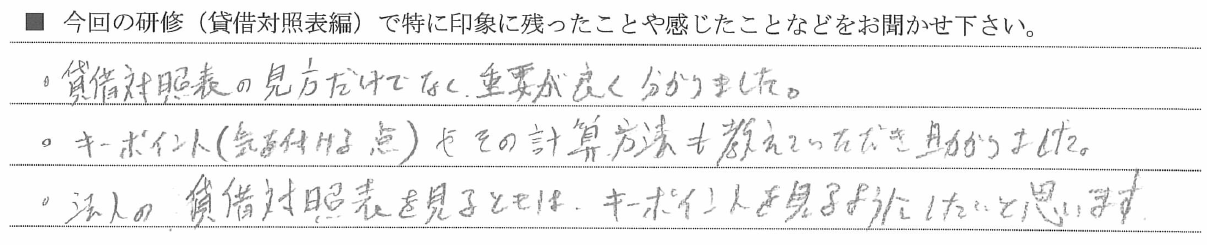 ■ 今回の研修（貸借対照表編）で特に印象に残ったことや感じたことなどをお聞かせ下さい。
。貸借対照表の見方だけでなく、重要が良く分かりました。
。キーポイント(気を付ける点)やその計算方法も教えていただき助かりました。
。法人の貸借対照表を見るときは、キーポイントを見るようにしたいと思います。